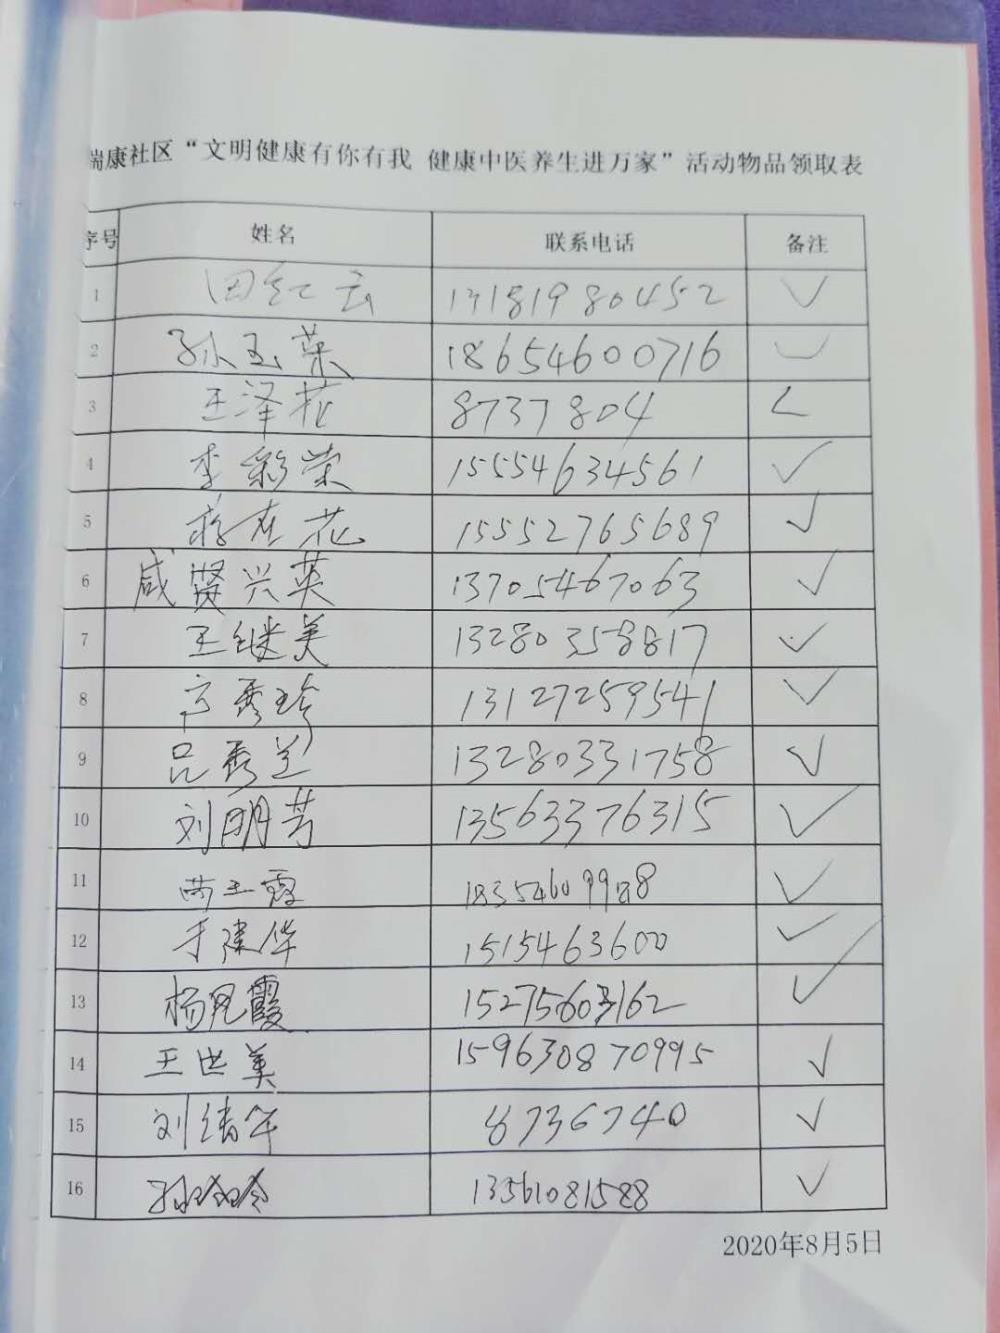 瑞康社区“文明健康有你有我 健康中医养生进万家”活动物品领取表
序号 姓名 联系电话 备注
1 田红云 13181980452 √
2 孙玉荣 18654600716 √
3 王泽花 8737804 √
4 李彩荣 15554634561 √
5 花 15552765689 √
6 咸贤兴英 13705467063 √
7 王继美 13280358817 √
8 秀珍 13127259541 √
9 吕秀兰 13280331758 √
10 刘明芳 13563376315 √
11 玉霞 18354609988 √
12 于建华 1515463600 √
13 杨見霞 15275603162 √
14 王世美 159630870995 √
15 刘绪年 8736740 √
16 孙玲玲 13561081588 √
2020年8月5日